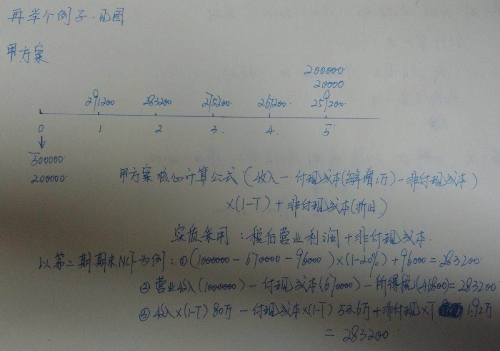 再举个例子.画图
甲方案
200000
20000
291200 283200 275200 267200 259200
0 1 2 3. 4. 5.
500000
200000
甲方案核心计算公式(收入-付现成本(每年增1万)-非付现成本)
×(1-T)+非付现成本(折旧)
实质采用:税后营业利润+非付现成本.
以第二期期末NCF为例:①(1000000-670000-96000)×(1-20%)+96000=283200
②营业收入(1000000)-付现成本(670000)-所得税(46800)=283200
③收入×(1-T)80万-付现成本×(1-T)53.6万+非付现×T 1.92万
=283200